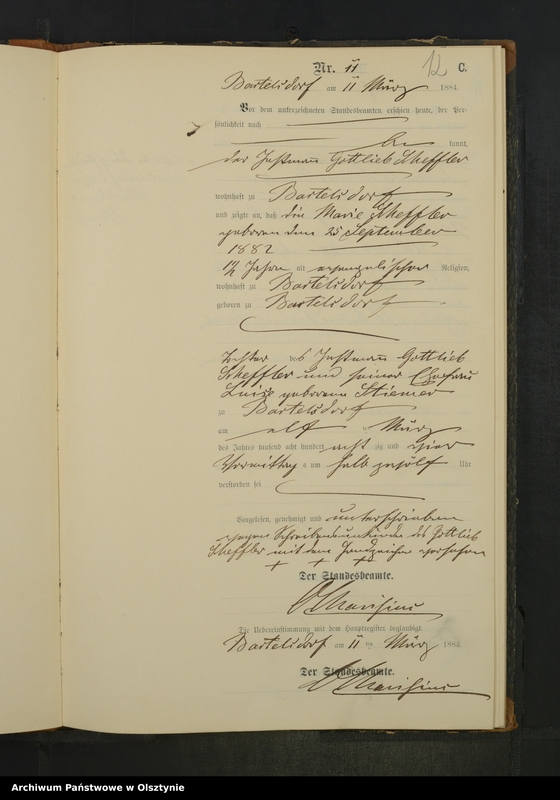 Nr. 11
12
C.
Bartelsdorf am 11 März 1884.
Vor dem unterzeichneten Standesbeamten erschien heute, der Per-
sönlichkeit nach
kannt,
der Instmann Gottlieb Scheffler
wohnhaft zu Bartelsdorf
und zeigte an, daß die Marie Scheffler
geboren den 25 September
1882
1½ Jahre alt evangelischer Religion,
wohnhaft zu Bartelsdorf
geboren zu Bartelsdorf
Tochter des Instmann Gottlieb
Scheffler und seiner Ehefrau
Luise geborene Stiemer
zu Bartelsdorf
am elf März
des Jahres tausend acht hundert acht zig und vier
Vormittag s um halb zwölf Uhr
verstorben sei
Vorgelesen, genehmigt und unterschrieben
wegen Schreibensunkunde des Gottlieb
Scheffler mit dem Handzeichen versehen
+ + +
Der Standesbeamte.
Die Uebereinstimmung mit dem Hauptregister beglaubigt
Bartelsdorf am 11 März 1884.
Der Standesbeamte.
Archiwum Państwowe w Olsztynie